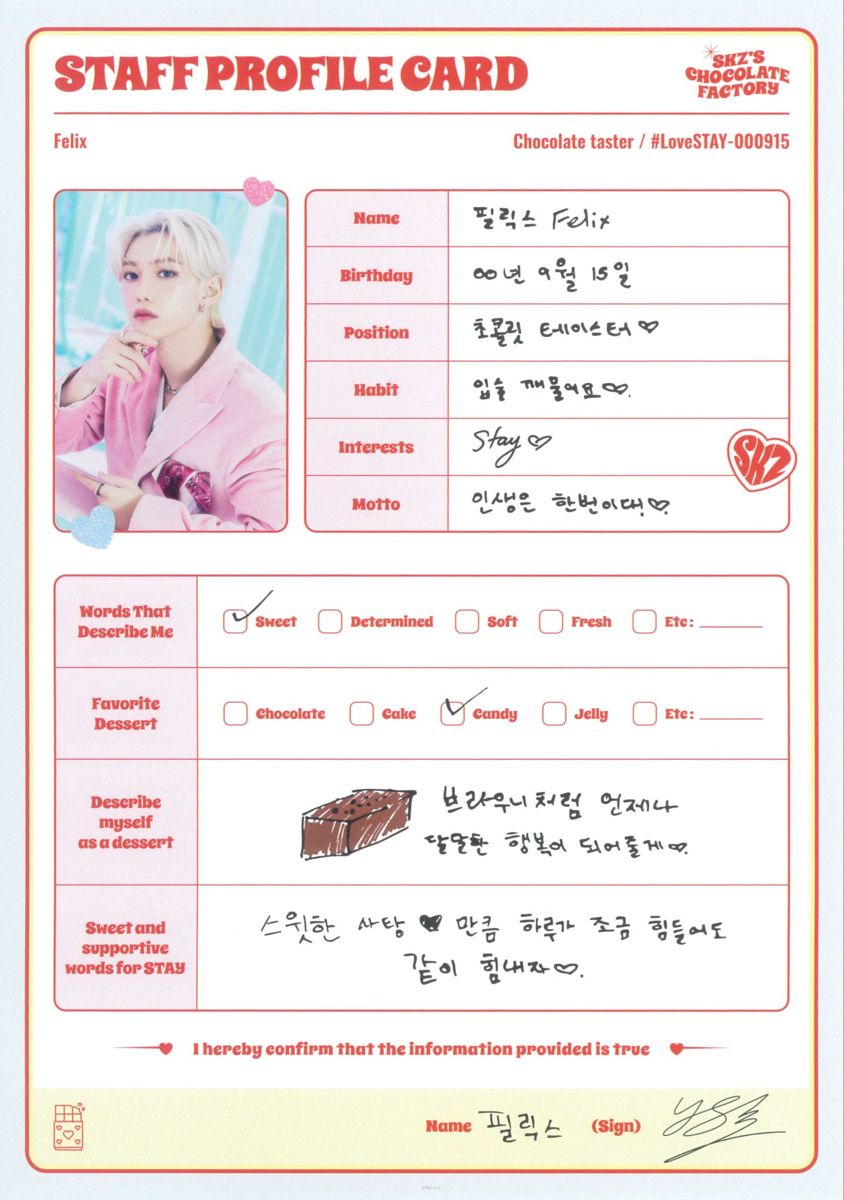 STAFF PROFILE CARD
SKZ'S
CHOCOLATE
FACTORY
Felix
Chocolate taster / #LoveSTAY-000915
Name
필릭스 Felix
Birthday
00년 9월 15일
Position
초콜릿 테이스터♡
Habit
입술 깨물어요♡.
Interests
Stay♡
SKZ
Motto
인생은 한번이대!♡.
Words That
Describe Me
Sweet
Determined
Soft
Fresh
Etc: ________
Favorite
Dessert
Chocolate
Cake
Candy
Jelly
Etc: ________
Describe
myself
as a dessert
브라우니처럼 언제나
달달한 행복이 되어줄게♡.
Sweet and
supportive
words for STAY
스윗한 사탕 ♥ 만큼 하루가 조금 힘들어도
같이 힘내자♡.
I hereby confirm that the information provided is true
Name 필릭스 (Sign)